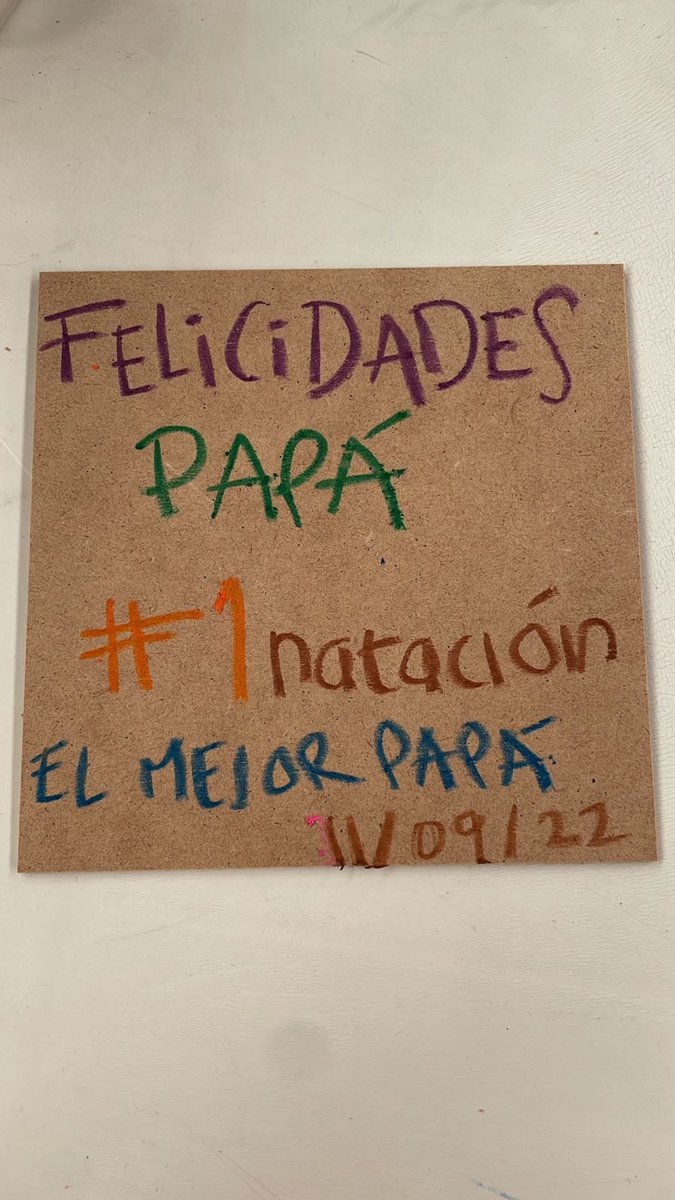 FELiCiDADES
PAPÁ
#1 natación
EL MEJOR PAPÁ
11/09/22